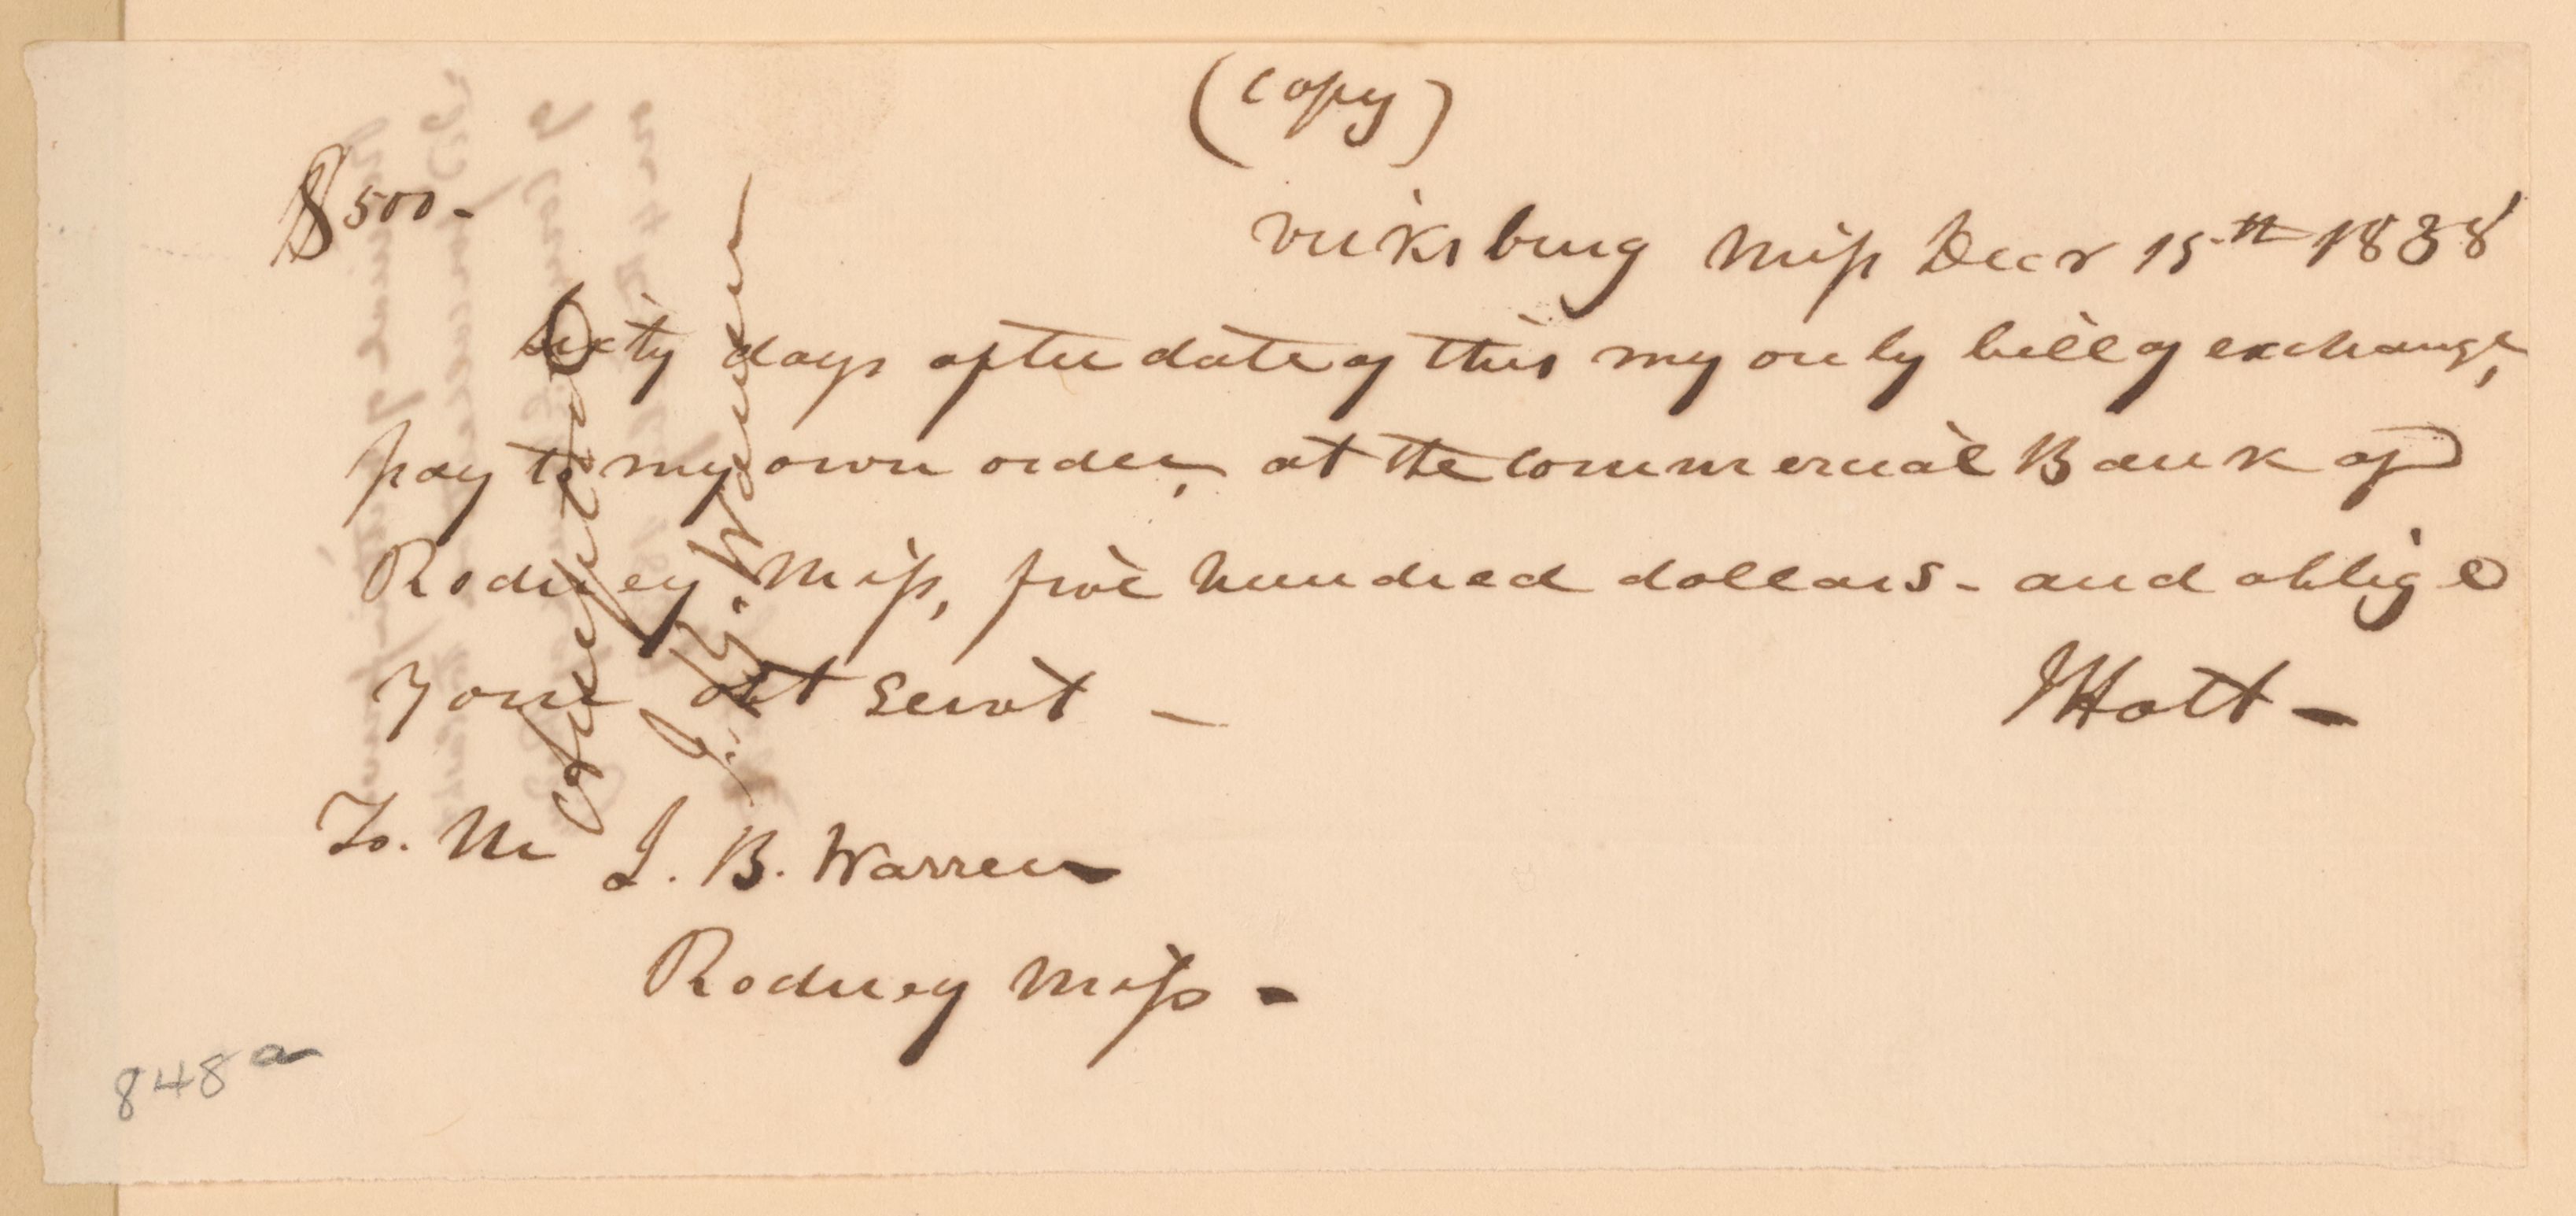 (Copy)
$500-
Vicksburg Miss Decr 15th 1838
Sixty days after date of this my only bill of exchange,
pay to my own order, at the Commercial Bank of
Rodney Miss, five hundred dollars - and oblige
Your obt servt -
JHolt -
To. Mr J. B. Warren
Rodney Miss -
Accepted
J. B. Warren
848a